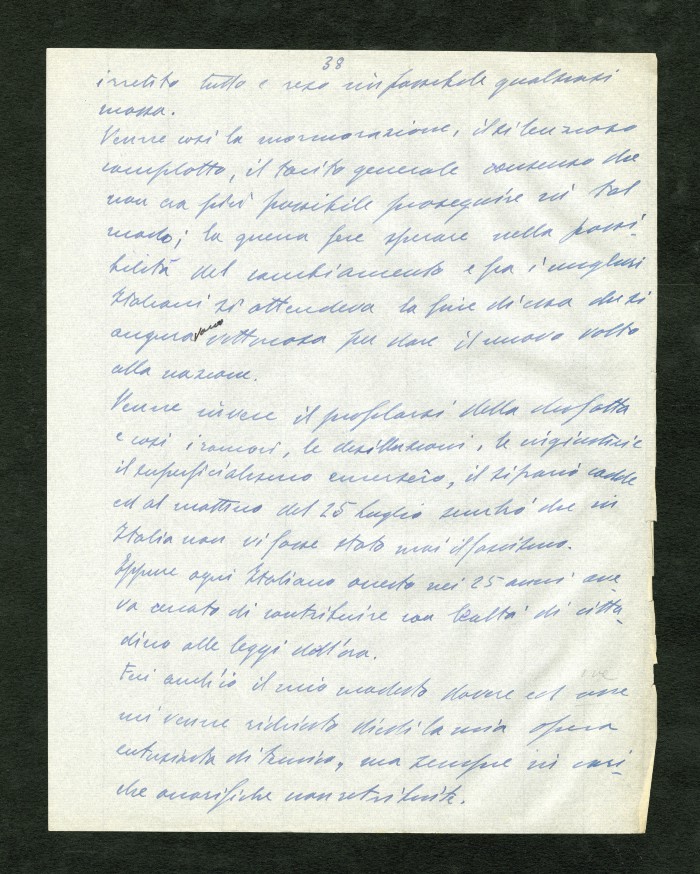 38
irretito tutto e reso impossibile qualsiasi
mossa.
Venne così la mormorazione, il silenzioso
complotto, il tacito generale consenso che
non era più possibile proseguire in tal
modo; la guerra fece sperare nella possi-
bilità del cambiamento e fra i migliori
Italiani si attendeva la fine di essa che si
augura vano vittoriosa per dare il nuovo volto
alla nazione.
Venne invece il profilarsi della disfatta
e così i rancori, le desillazioni, le ingiustizie
il superficialismo emersero, il sipario cadde
ed al mattino del 25 luglio sembrò che in
Italia non vi fosse stato mai il fascismo.
Eppure ogni Italiano onesto nei 25 anni ave-
va cercato di contribuire con lealtà di citta-
dino alle leggi dell'ora.
Feci anch'io il mio modesto dovere ed ove
mi venne richiesto diedi la mia opera
entusiasta di tecnico, ma sempre in cari-
che onorifiche non retribuite.